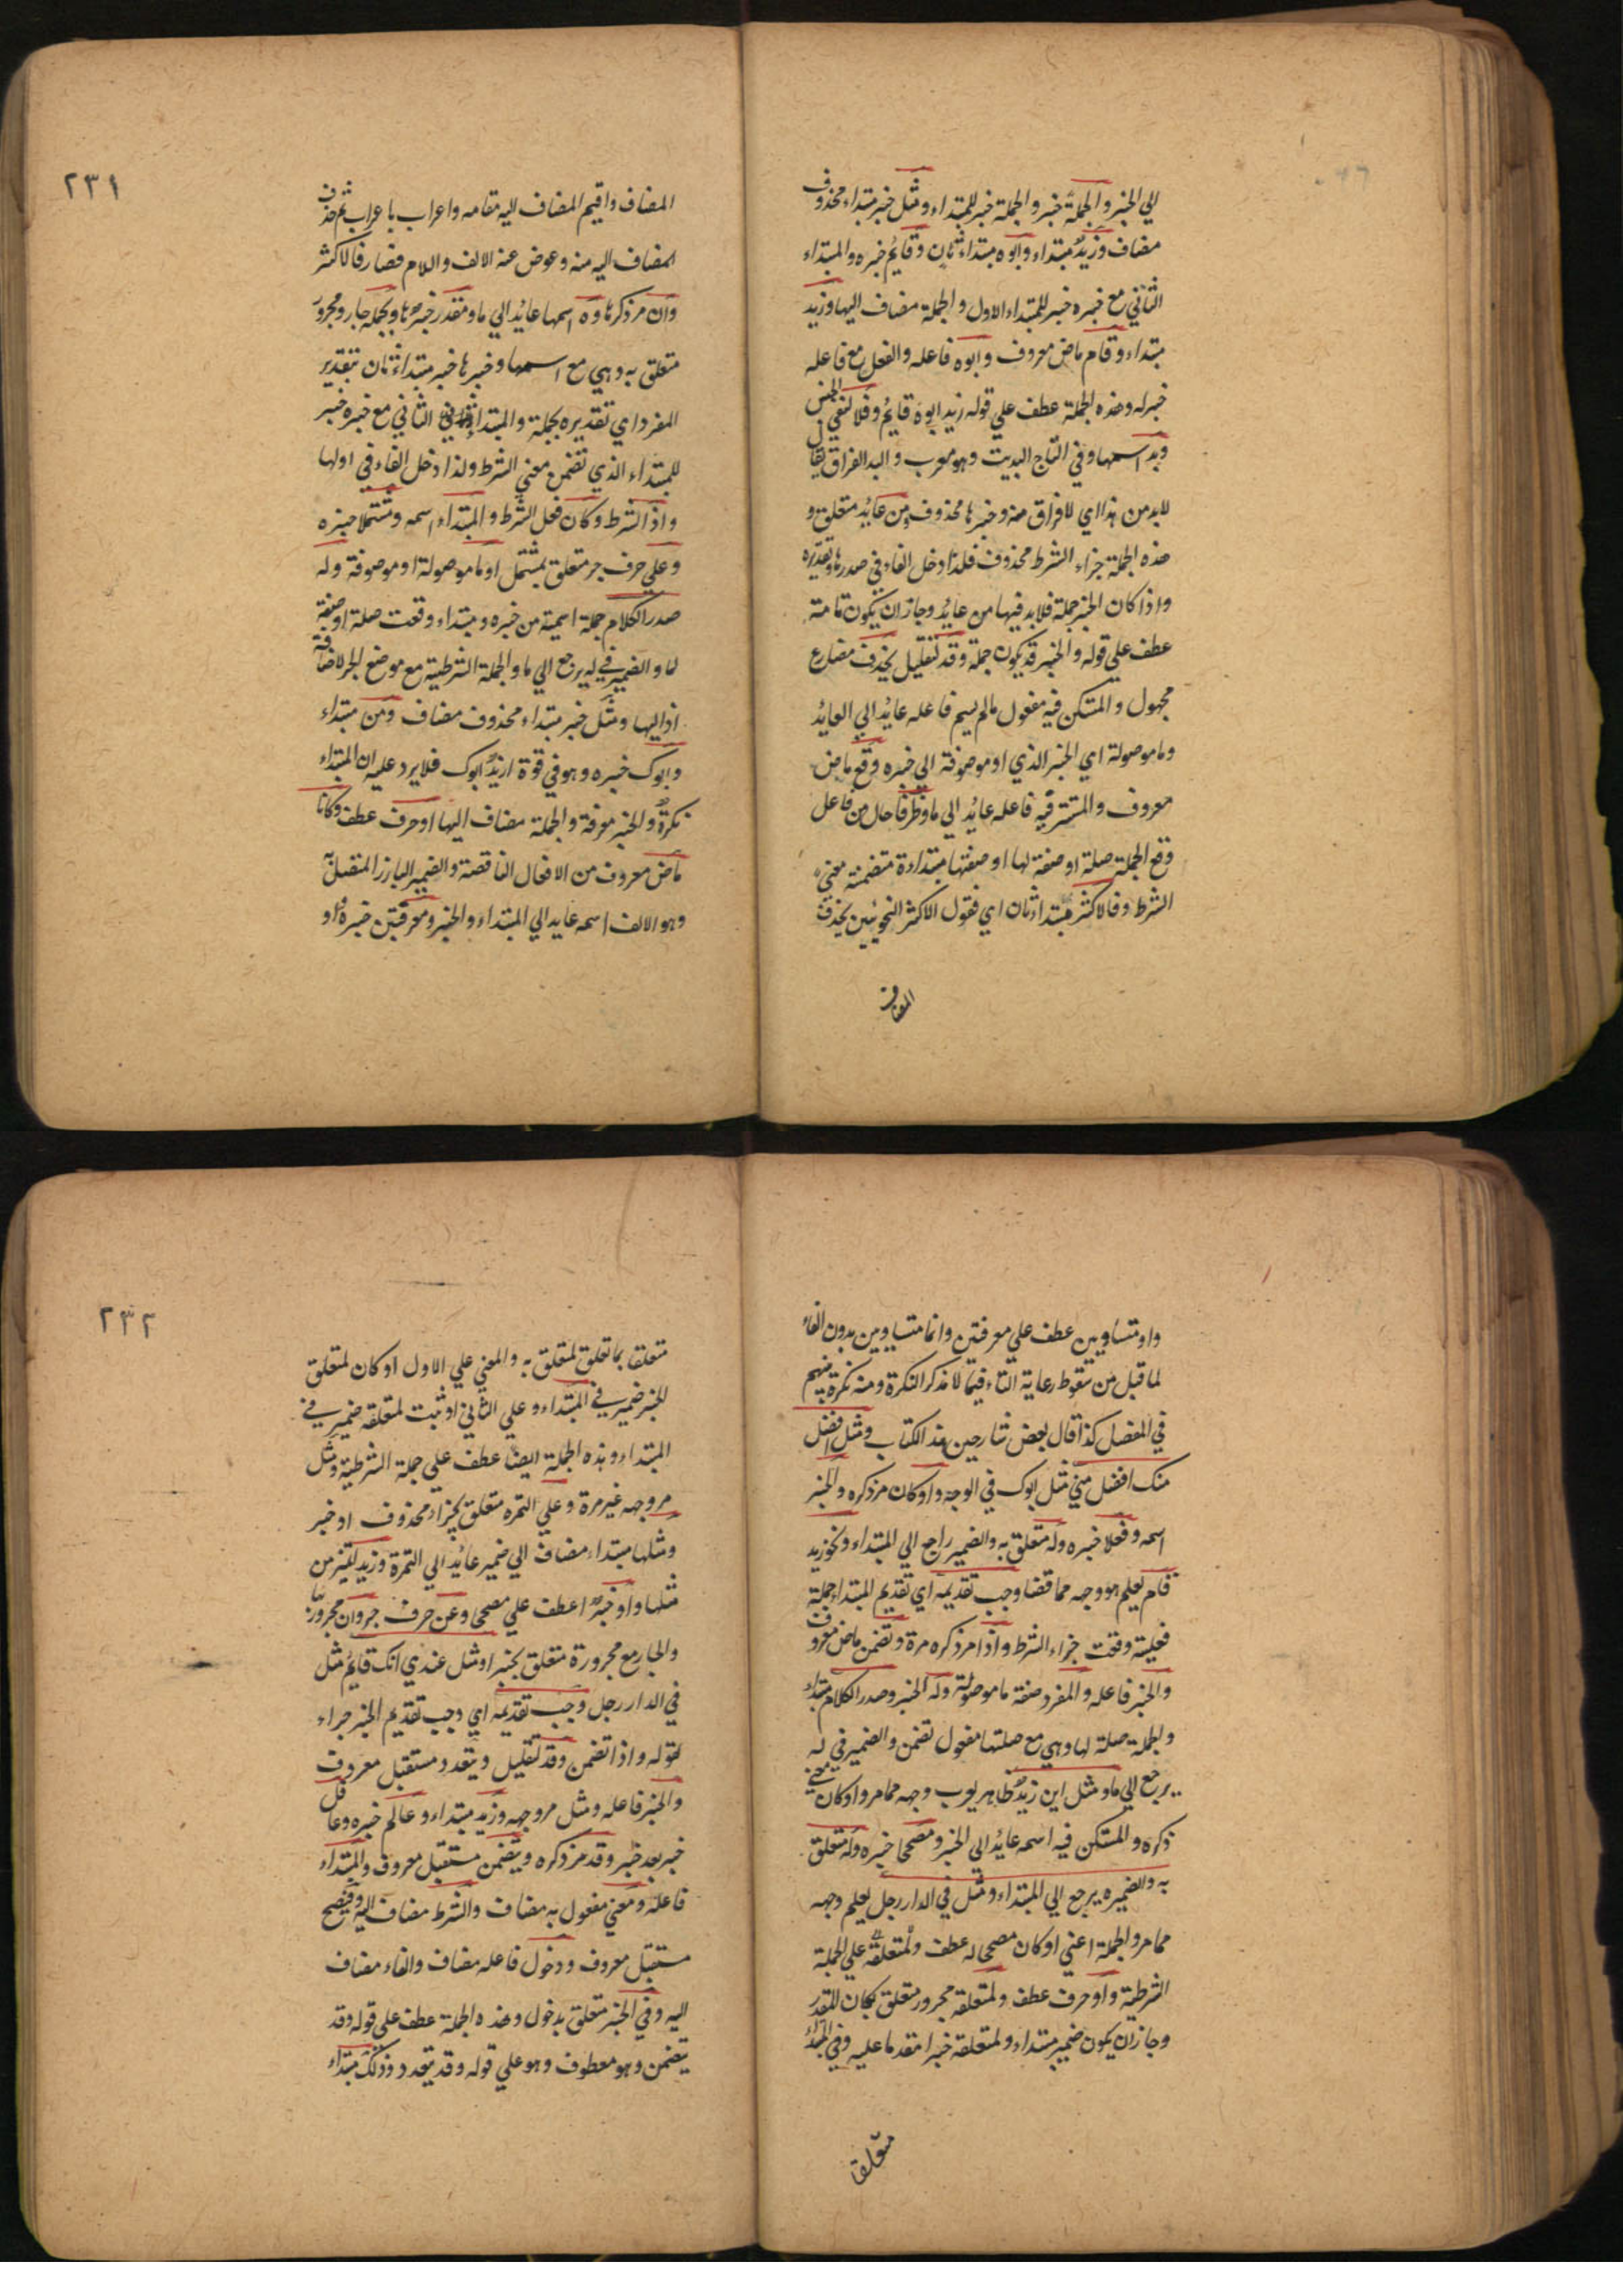 الي الخبر والجملة خبر والجملة خبر للمبتداء ومثل خبر مبتداء محذوف
مضاف وزيد مبتداء وابوه مبتداء ثان وقايم خبره والمبتداء
الثاني مع خبره خبر للمبتداء الاول والجملة مضاف اليها وزيد
مبتداء وقام ماض معروف وابوه فاعله والفعل مع فاعله
خبر له وهذه الجملة عطف علي قوله زيد ابوه قايم وفلا لنفي الجنس
وبد اسمها وفي التاج البديت وهو معرب والبد الفراق يقال
لابد من هذا اي لا فراق منه وخبرها محذوف ومن عايد متعلق و
هذه الجملة جزاء الشرط محذوف فلذا دخل الفاء في صدرها وتقديره
واذا كان الخبر جملة فلا بد فيها من عايد وجاز ان يكون تامة
عطف علي قوله والخبر قد يكون جملة وقد لتقليل يحذف مضارع
مجهول والمستكن فيه مفعول مالم يسم فاعله عايد الي العايد
وما موصولة اي الخبر الذي او موصوفة الي خبره وقع ماض
معروف والمستتر فيه فاعله عايد الي ما وظرفا حال من فاعل
وقع الجملة صلة او صفة لها او صفتها مبتداءة متضمنة معني
الشرط وفالاكثر مبتداء ثان اي فقول الاكثر النحويين يحذف
المضاف
٢٣١
المضاف واقيم المضاف اليه مقامه واعراب باعراب ثم حذف
المضاف اليه منه وعوض عنه الالف واللام فصار فالاكثر
وان مر ذكرها وه اسمها عايد الي ما ومقدر خبرها وبجملة جار ومجرور
متعلق به وهي مع اسمها وخبرها خبر مبتداء ثان بتقدير
المفرد اي تقديره بجملة والمبتداء الثاني مع خبره خبر
للمبتداء الذي تضمن معني الشرط ولذا دخل الفاء في اولها
واذا الشرط وكان فعل الشرط والمبتداء اسمه ومشتملا خبره
وعلي حرف جر متعلق بمشتمل او ما موصولة او موصوفة وله
صدر الكلام جملة اسمية من خبره ومبتداء وقعت صلة او صفة
لما والضمير في له يرجع الي ما والجملة الشرطية مع موضع الجر لاضافة
اذا اليها ومثل خبر مبتداء محذوف مضاف ومن مبتداء
وابوك خبره وهو في قوة ازيد ابوك فلا يرد عليه ان المبتداء
نكرة والخبر معرفة والجملة مضاف اليها او حرف عطف وكانا
ماض معروف من الافعال الناقصة والضمير البارز المتصل به
وهو الالف اسمه عايد الي المبتداء والخبر ومعرفتين خبره او
واو متساويين عطف علي معرفتين وانما متساويين بدون التاء
لما قبل من سقوط رعاية التاء فيما لا مذكر النكرة ومنه نكرة يفهم
في المفصل كذا قال بعض شارحين هذا الكتاب ومثل افضل
منك افضل مني مثل ابوك في الوجه واو كان مر ذكره والخبر
اسمه وفعلا خبره وله متعلق به والضمير راجع الي المبتداء ونحو زيد
قام يعلم هو وجه مما قضا وجب تقديمه اي تقديم المبتداء جملة
فعلية وقعت جزاء الشرط واذا مر ذكره مرة وتضمن ماض معروف
والخبر فاعله والمفرد صفة ما موصولة وله الخبر وصدر الكلام مبتداء
والجملة صلة لها وهي مع صلتها مفعول تضمن والضمير في له
يرجع الي ما ومثل اين زيد ظاهر يوب وجه مما مر واو كان
ذكره والمستكن فيه اسمه عايد الي الخبر ومصححا خبره وله متعلق
به والضميره يرجع الي المبتداء ومثل في الدار رجل يعلم وجهه
مما مر والجملة اعني او كان مصححا له عطف ولمتعلقه علي الجملة
الشرطية واو حرف عطف ولمتعلقه مجرور متعلق بكان المقدر
وجاز ان يكون ضمير مبتداء ولمتعلقه خبرا مقدما عليه وفي المبتداء
متعلقا
٢٣٢
متعلقا بما تعلق لمتعلق به والمعني علي الاول او كان لمتعلق
الخبر ضمير في المبتداء وعلي الثاني او ثبت لمتعلقه ضمير في
المبتداء وهذه الجملة ايضا عطف علي جملة الشرطية ومثل
مر وجهه غير مرة وعلي التمرة متعلق بجزاء محذوف او خبر
ومثلها مبتداء مضاف الي ضمير عايد الي التمرة وزيد تميز من
مثلها واو خبرا عطف علي مصححا وعن حرف جر وان مجرور
والجار مع مجرورة متعلق بخبرا ومثل عندي انك قايم مثل
في الدار رجل وجب تقديمه اي وجب تقديم الخبر جزاء
لقوله واذا تضمن وقد لتقليل ويتعدد مستقبل معروف
والخبر فاعله ومثل مر وجهه وزيد مبتداء وعالم خبره وعاقل
خبر بعد خبر وقد مر ذكره ويتضمن مستقبل معروف والمبتداء
فاعله ومعني مفعول به مضاف والشرط مضاف اليه وفيصح
مستقبل معروف ودخول فاعله مضاف والفاء مضاف
اليه وفي الخبر متعلق بدخول وهذه الجملة عطف علي قوله وقد
يتضمن وهو معطوف وهو علي قوله وقد يتعدد وذلك مبتداء